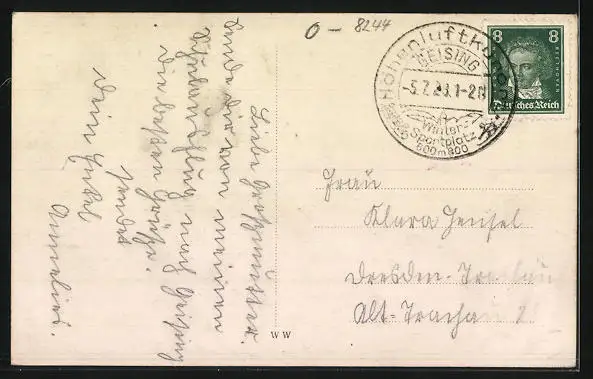 O - 8244
Höhenluftkurort
GEISING
-5.7.29.1-2N
Winter-
Sportplatz
600m800
8 8
BEETHOVEN
Deutsches Reich
Liebe Großmutter.
Sende dir von meinem
Schulausflug nach Geising
die besten Grüße.
sendet
dein Enkel
Annelies.
Frau
Klara Hensel
Dresden-Trachau
Alt-Trachau
WW